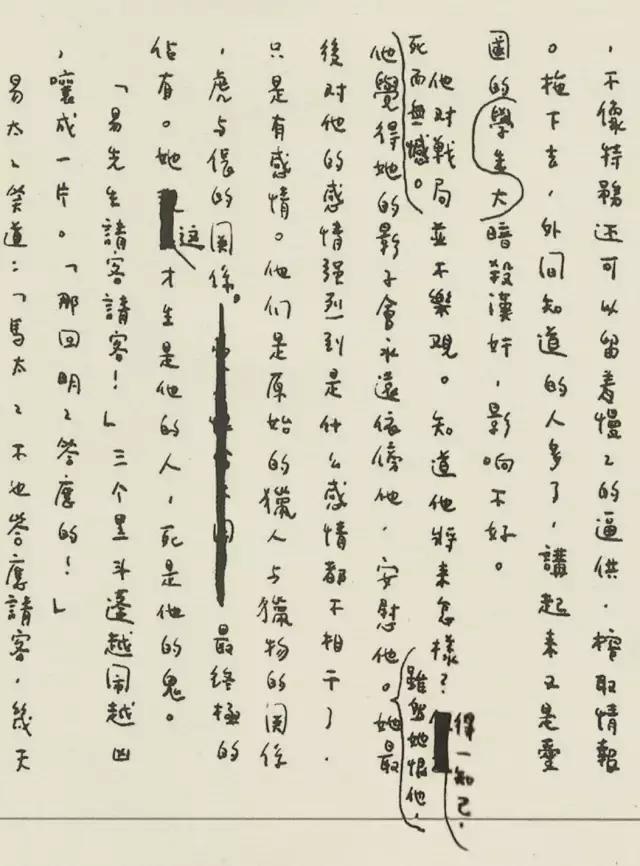 ，不像特務还可以留着慢〻的逼供，榨取情報
。拖下去，外间知道的人多了，講起來又是愛
國的學生大暗殺漢奸，影响不好。
他对戰局並不樂观。知道他將來怎樣？
得一知己，
死而無憾。
他覺得她的影子會永遠依傍他，安慰他。她最
雖然她恨他，
後对他的感情强烈到是什么感情都不相干了，
只是有感情。他们是原始的獵人与獵物的関係
，虎与伥的関係。最終極的
佔有。她这才生是他的人，死是他的鬼。
「易先生請客請客！」三个黑斗蓬越闹越凶
，嚷成一片。「那回明〻答應的！」
易太〻笑道：「馬太〻不也答應請客，幾天